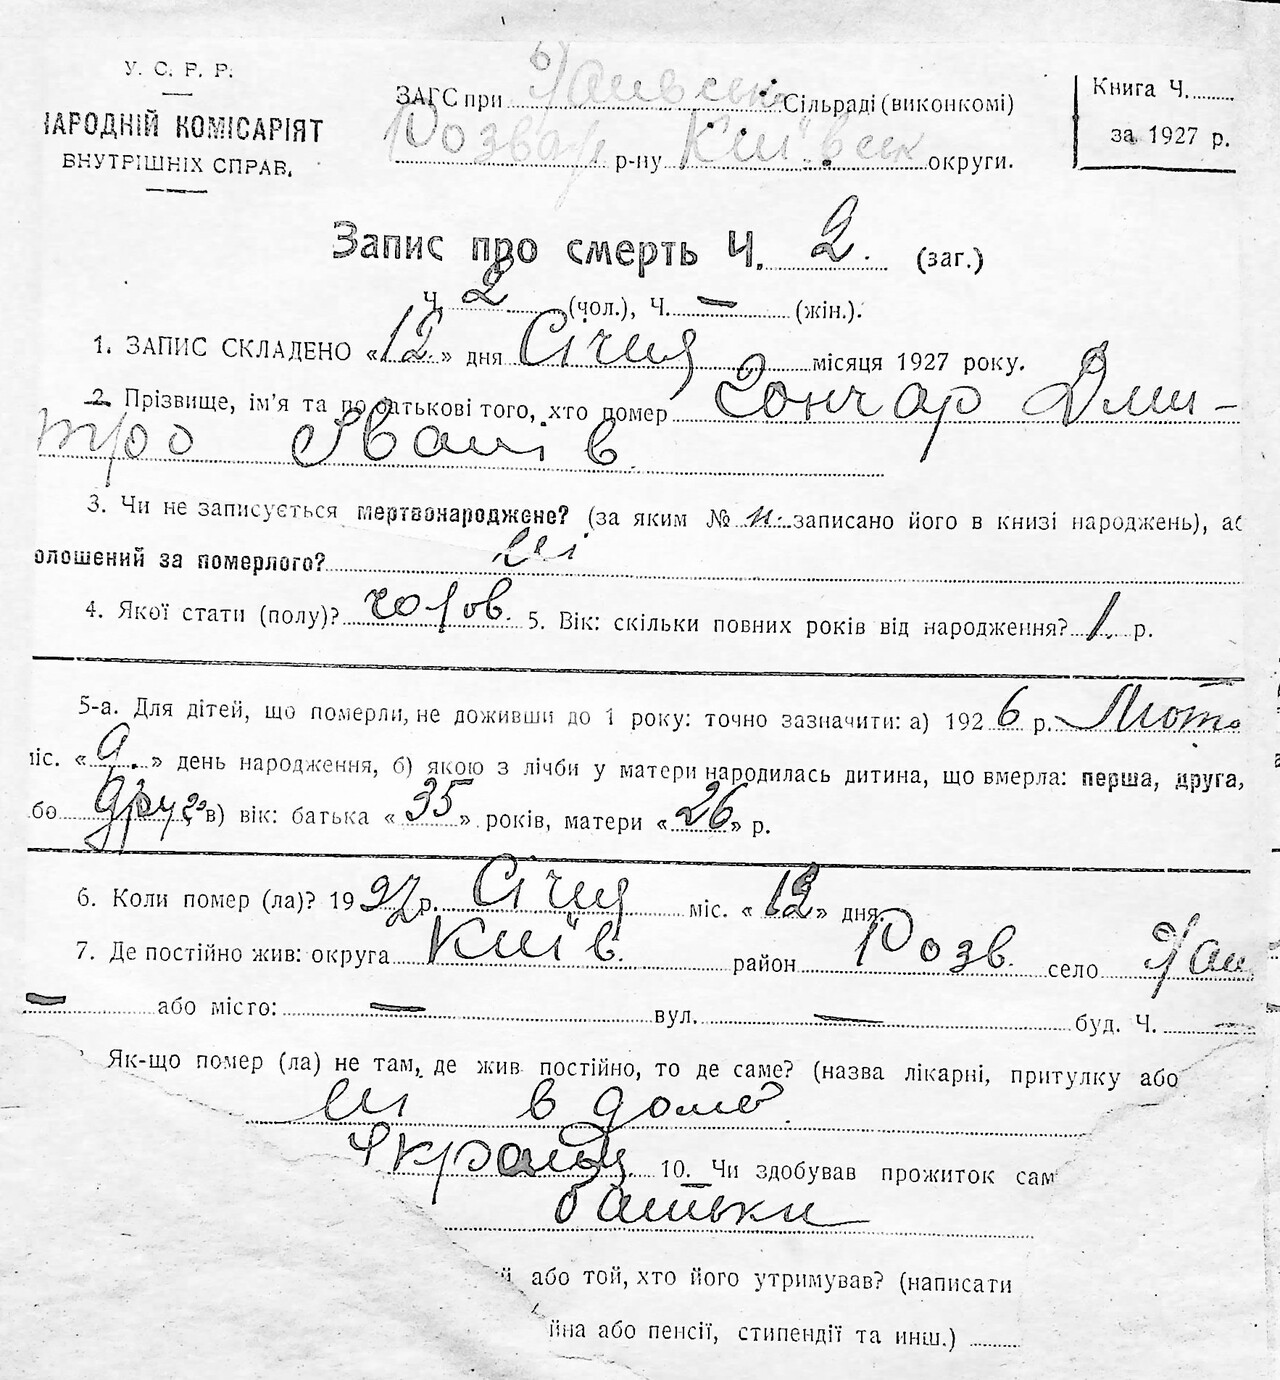 У. С. Р. Р.
НАРОДНІЙ КОМІСАРІЯТ
ВНУТРІШНІХ СПРАВ.
ЗАГС при Сільраді (виконкомі)
Розваж р-ну Київськ округи.
Книга Ч.
за 1927 р.
Запис про смерть Ч. 2. (заг.)
Ч. 2 (чол.), Ч. — (жін.).
1. ЗАПИС СКЛАДЕНО «12» дня Січня місяця 1927 року.
2. Прізвище, ім'я та по батькові того, хто помер Гончар Дми-
тро Іванів
3. Чи не записується мертвонароджене? (за яким № н. записано його в книзі народжень), аб
олошений за померлого? ні
4. Якої стати (полу)? чолов. 5. Вік: скільки повних років від народження? 1. р.
5-а. Для дітей, що померли, не доживши до 1 року: точно зазначити: а) 1926 р. Лют
міс. «9.» день народження, б) якою з лічби у матери народилась дитина, що вмерла: перша, друга,
бо друга в) вік: батька «35» років, матери «26» р.
6. Коли помер (ла)? 1927 р. Січня міс. «12» дня.
7. Де постійно жив: округа Київ. район Розв. село
— або місто: — вул. — буд. Ч. —
Як-що помер (ла) не там, де жив постійно, то де саме? (назва лікарні, притулку або
ні в дома
Українц. 10. Чи здобував прожиток сам
батьки
й або той, хто його утримував? (написати
йна або пенсії, стипендії та инш.)